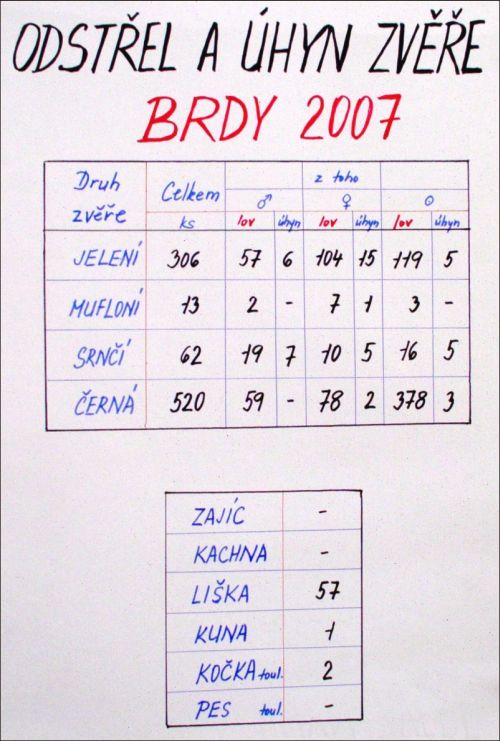 ODSTŘEL A ÚHYN ZVĚŘE
BRDY 2007
Druh zvěře Celkem z toho
♂ ♀ ⊙
ks lov úhyn lov úhyn lov úhyn
JELENÍ 306 57 6 104 15 119 5
MUFLONÍ 13 2 - 7 1 3 -
SRNČÍ 62 19 7 10 5 16 5
ČERNÁ 520 59 - 78 2 378 3
ZAJÍC -
KACHNA -
LIŠKA 57
KUNA 1
KOČKA toul. 2
PES toul. -